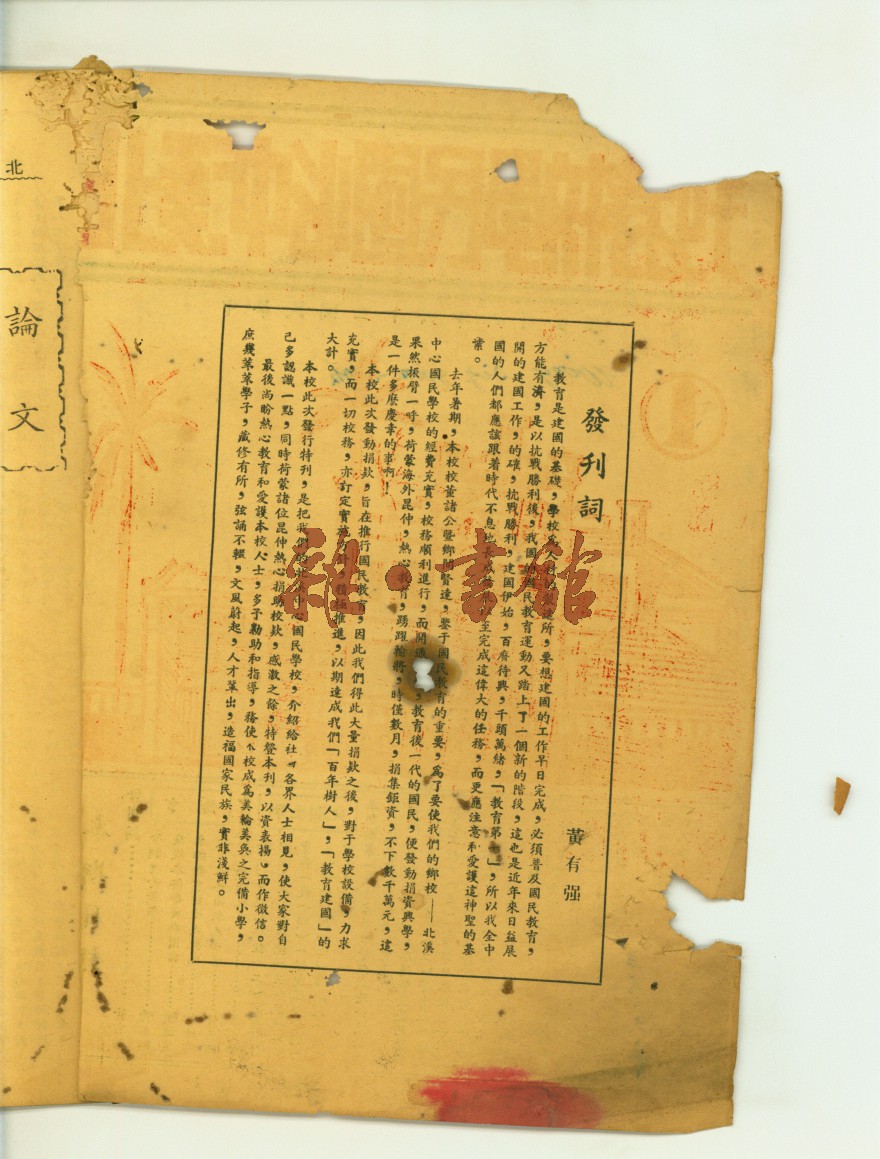 發刊詞
黃有强
教育是建國的基礎，學校爲人材的製造所，要想建國的工作早日完成，必須普及國民教育，
方能有濟，是以抗戰勝利後，我國的國民教育運動又踏上了一個新的階段，這也是近年來日益展
開的建國工作，的確，抗戰勝利，建國伊始，百廢待興，千頭萬緒，「教育第一」，所以我全中
國的人們都應該跟着時代不息地長成 至完成這偉大的任務，而更應注意和愛護這神聖的基
業。
去年暑期，本校校董諸公暨鄉 賢達，鑒于國民教育的重要，爲了要使我們的鄉校——北溪
中心國民學校的經費充實，校務順利進行，而開 教育後一代的國民，便發動捐資興學，
果然振臂一呼，荷蒙海外昆仲，熱心教育，踴躍輸將，時僅數月，捐集鉅資，不下數千萬元，這
是一件多麽慶幸的事啊！
本校此次發動捐款，旨在推行國民教育，因此我們得此大量捐欵之後，對于學校設備，力求
充實，而一切校務，亦訂定實施方針，積極推進，以期達成我們「百年樹人」，「教育建國」的
大計。
本校此次發行特刊，是把我們的北溪中心國民學校，介紹給社 各界人士相見，使大家對自
己多認識一點，同時荷蒙諸位昆仲熱心捐助校欵，感激之餘，特發本刊，以資表揚，而作徵信。
最後尚盼熱心教育和愛護本校人士，多予勷助和指導，務使 校成爲美輪美奐之完備小學，
庶幾莘莘學子，藏修有所，弦誦不輟，文風蔚起，人才輩出，造福國家民族，實非淺鮮。
北
論文
雜·書館